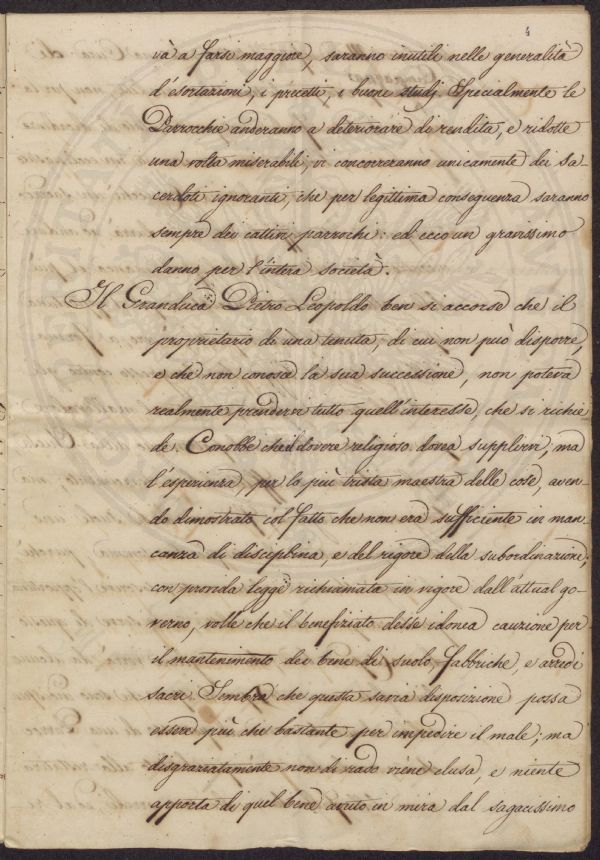 4
và a farsi maggiore, saranno inutili nelle generalità
d'esortazioni, i precetti, i buoni studj. Specialmente le
Parrocchie anderanno a deteriorare di rendita, e ridotte
una volta miserabili, vi concorreranno unicamente dei Sa
cerdoti ignoranti, che per legittima conseguenza saranno
sempre dei cattivi parrochi: ed ecco un gravissimo
danno per l'intera società.
Il Granduca Pietro Leopoldo ben si accorse che il
proprietario di una tenuta, di cui non può disporre,
e che non conosce la sua successione, non poteva
realmente prendervi tutto quell'interesse, che si richie
de. Conobbe che il dovere religioso dovea supplirvi, ma
l'esperienza, per lo più trista maestra delle cose, aven
do dimostrato col fatto che non era sufficiente in man
canza di disciplina, e del rigore della subordinazione;
con provida legge richiamata in vigore dall'attual go
verno, volle che il benefiziato desse idonea cauzione per
il mantenimento dei beni di suolo, fabbriche, e arredi
sacri. Sembra che questa savia disposizione possa
essere più che bastante per impedire il male; ma
disgraziatamente non di rado viene elusa, e niente
apporta di quel bene avuto in mira dal sagacissimo